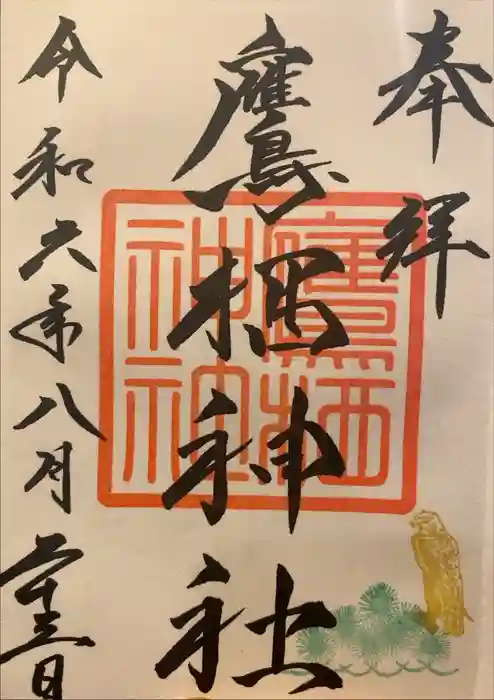 奉拝
鷹栖神社
鷹栖神社
令和六年八月二十三日